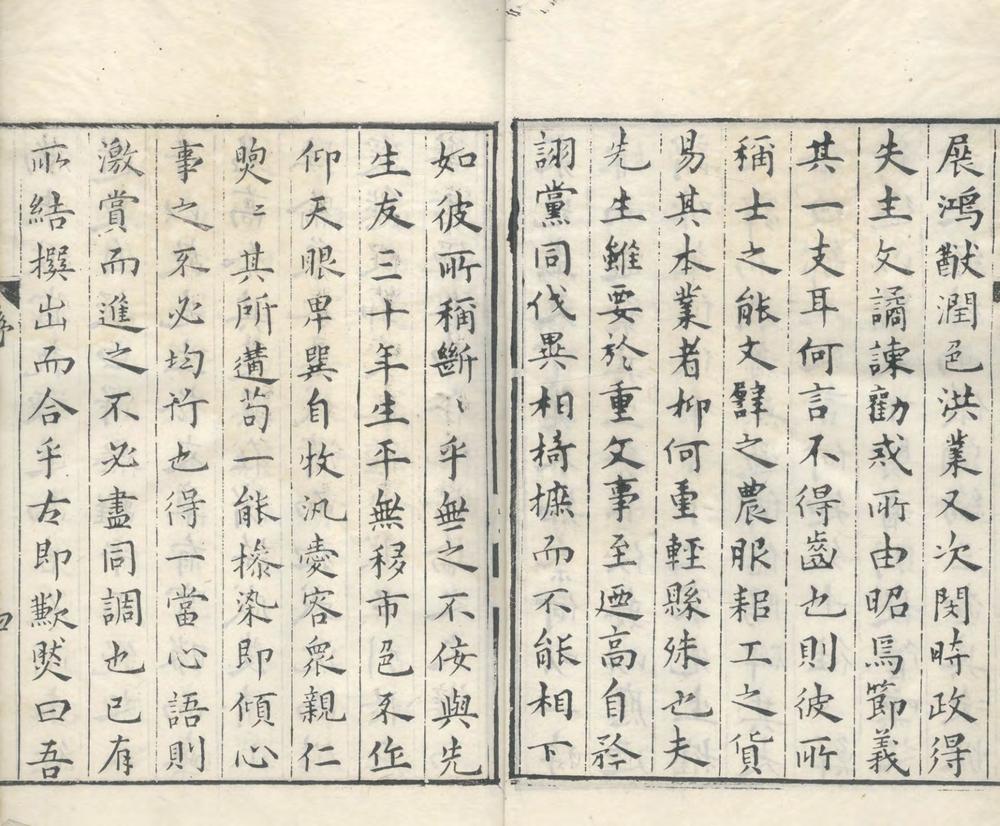 展鴻猷潤色洪業又次閔時政得
失主文譎諫勸戒所由昭焉節義
其一支耳何言不得齒也則彼所
稱士之能文譬之農服耜工之貨
易其本業者抑何重輕縣殊也夫
先生雖要於重文事至迺高自矜
詡黨同伐異相掎摭而不能相下
如彼所稱斷〻乎無之不佞與先
生友三十年生平無移市色不作
仰天眼卑巽自牧汎愛容衆親仁
煦〻其所遘苟一能摻染即傾心
事之不必均竹也得一當心語則
激賞而進之不必盡同調也已有
所結撰出而合乎古即歉然曰吾
序
四